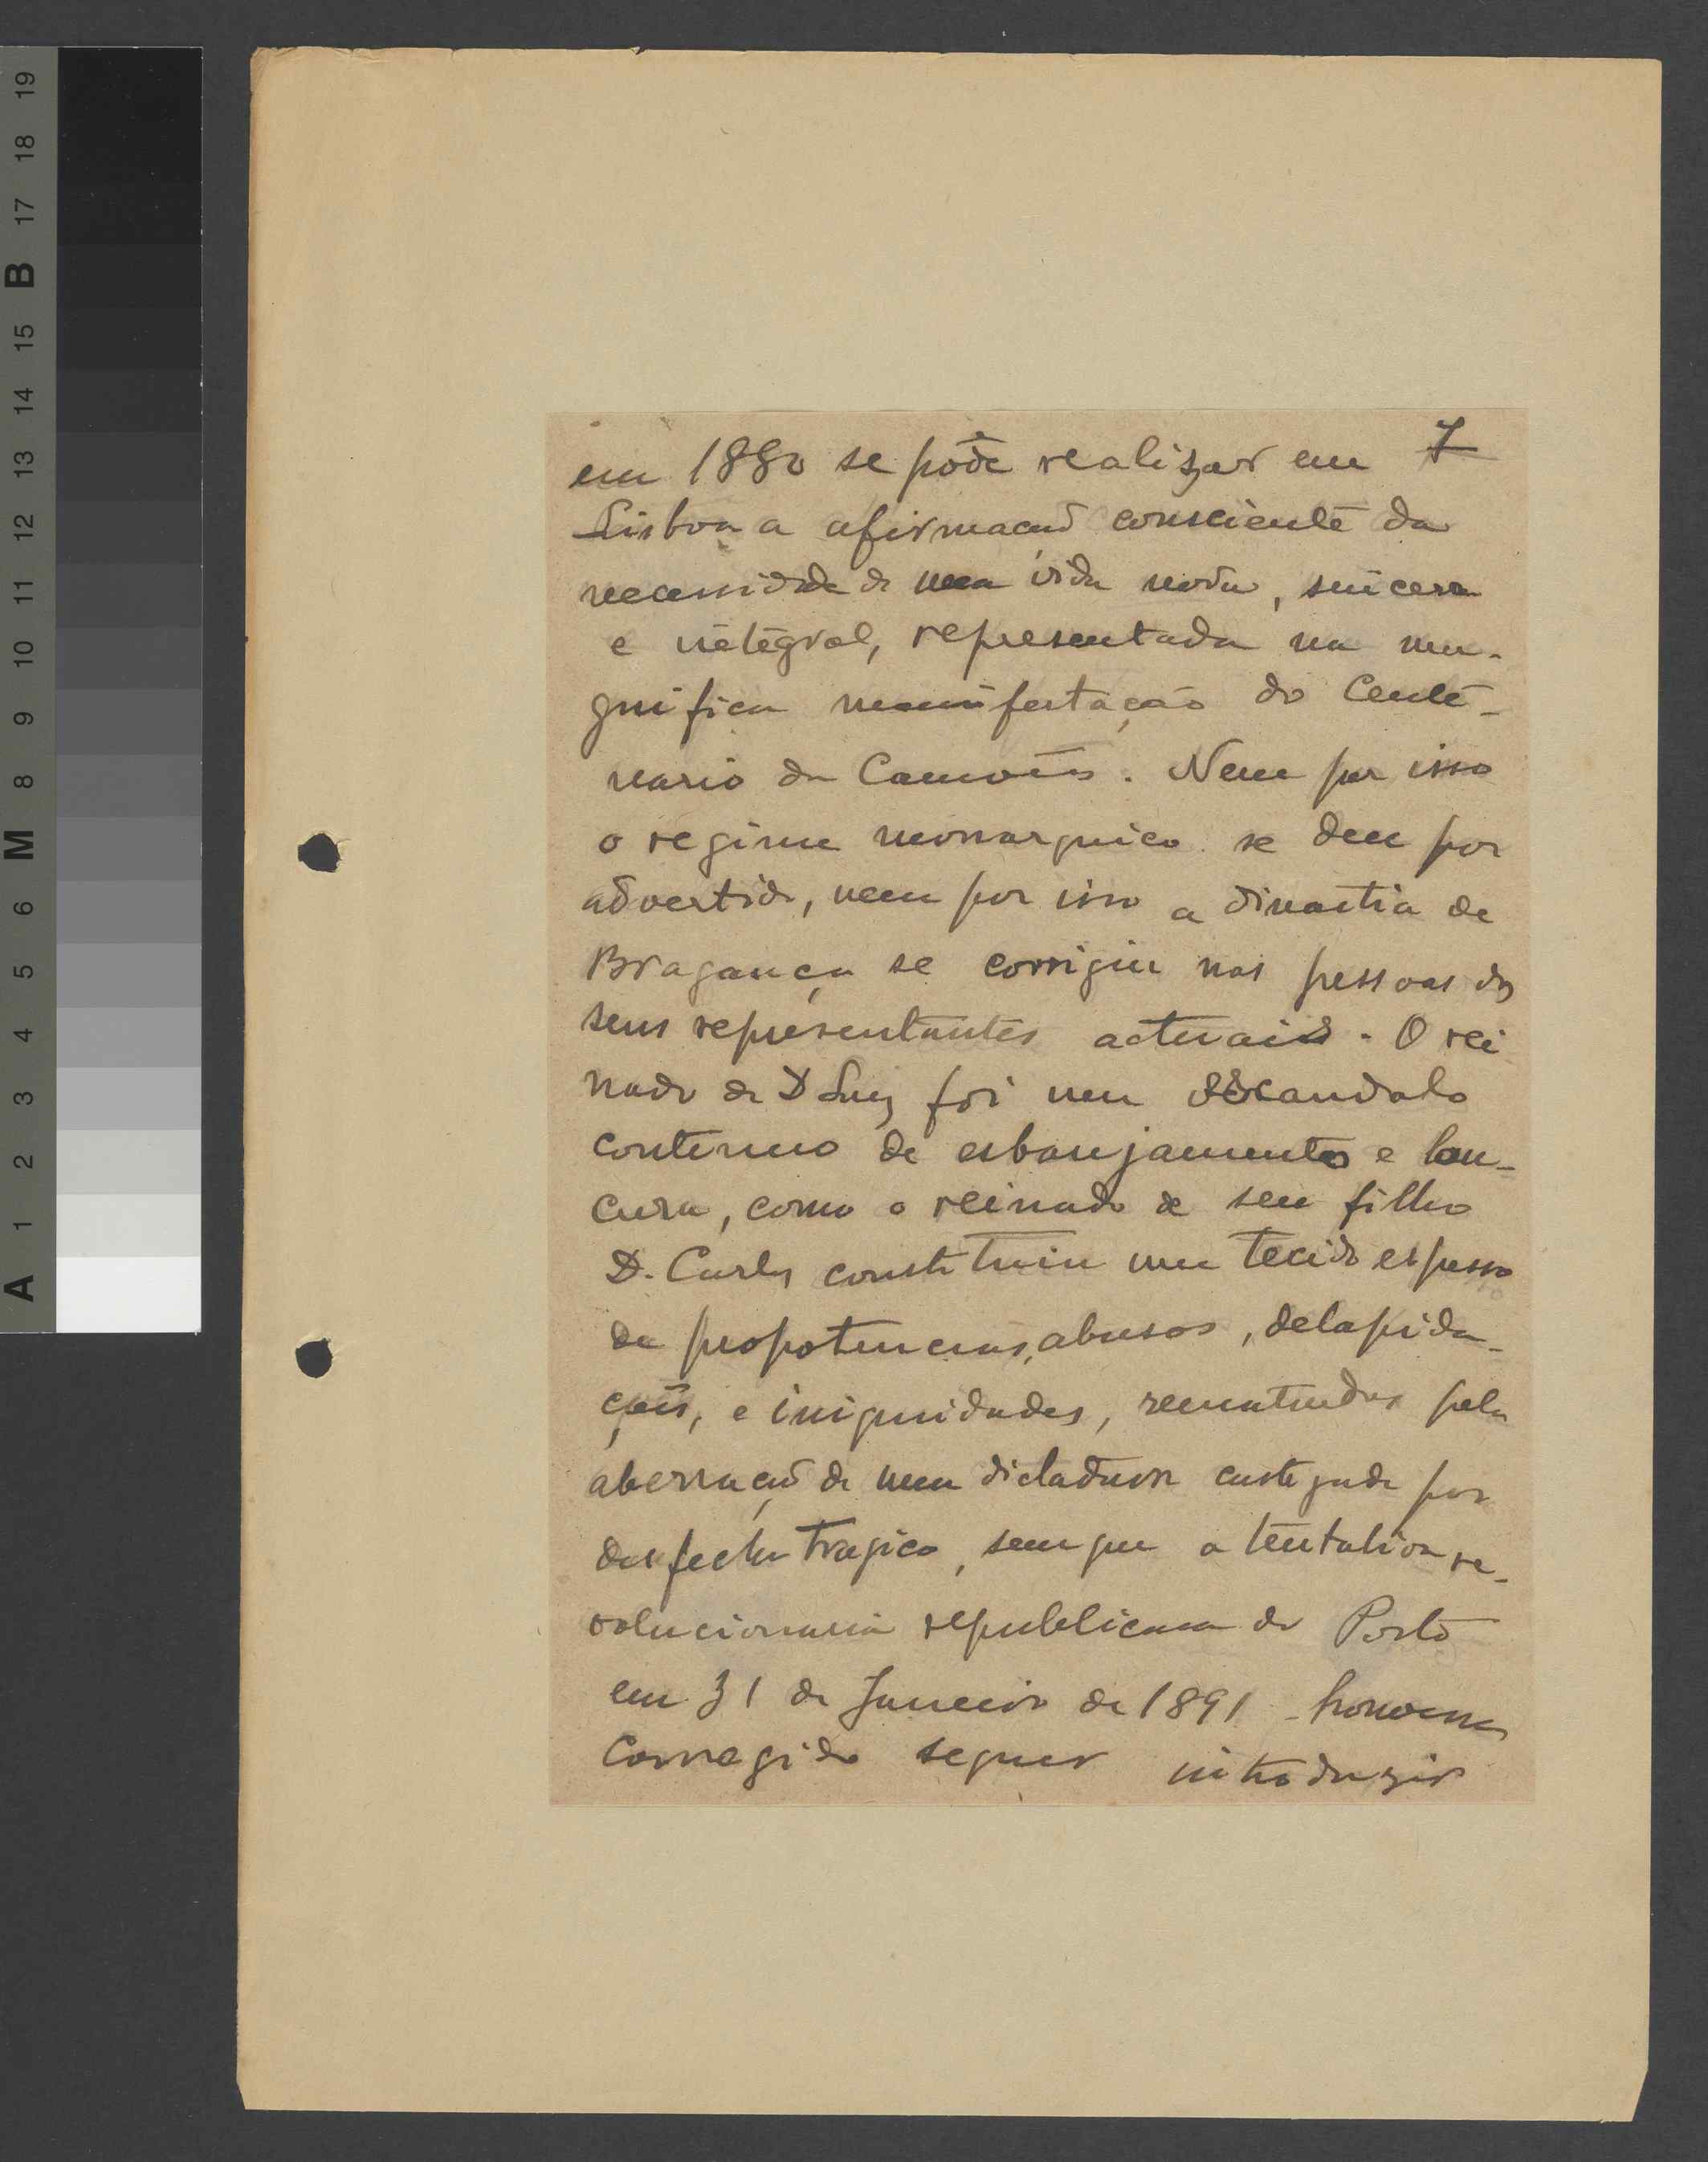 7
em 1880 se pôde realizar em
Lisboa a afirmação consciente da
necessidade de uma vida nova, sincera
e integral, representada na ma-
gnifica manifestação do Cente-
nario de Camões. Nem por isso
o regime monarquico se deu por
advertido, nem por isso a dinastia de
Bragança se corrigiu nas pessoas dos
seus representantes actuais. O rei
nado de D Luiz foi um escandalo
continuo de esbanjamentos e lou-
cura, como o reinado de seu filho
D. Carlos constituiu um tecido espesso
de propotencias, abusos, delapida-
ções, e iniquidades, rematadas pela
aberração de uma dictadura castigada por
desfecho tragico, sem que a tentativa re-
volucionaria republicana do Porto
em 31 de Janeiro de 1891 houvesse
conseguido sequer introduzir